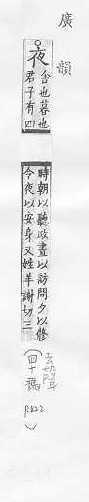 廣韻
夜舍也暮也
君子有四
時朝以聽政晝以訪問夕以修
令夜以安身又姓羊謝切三
(四十禡
P422)